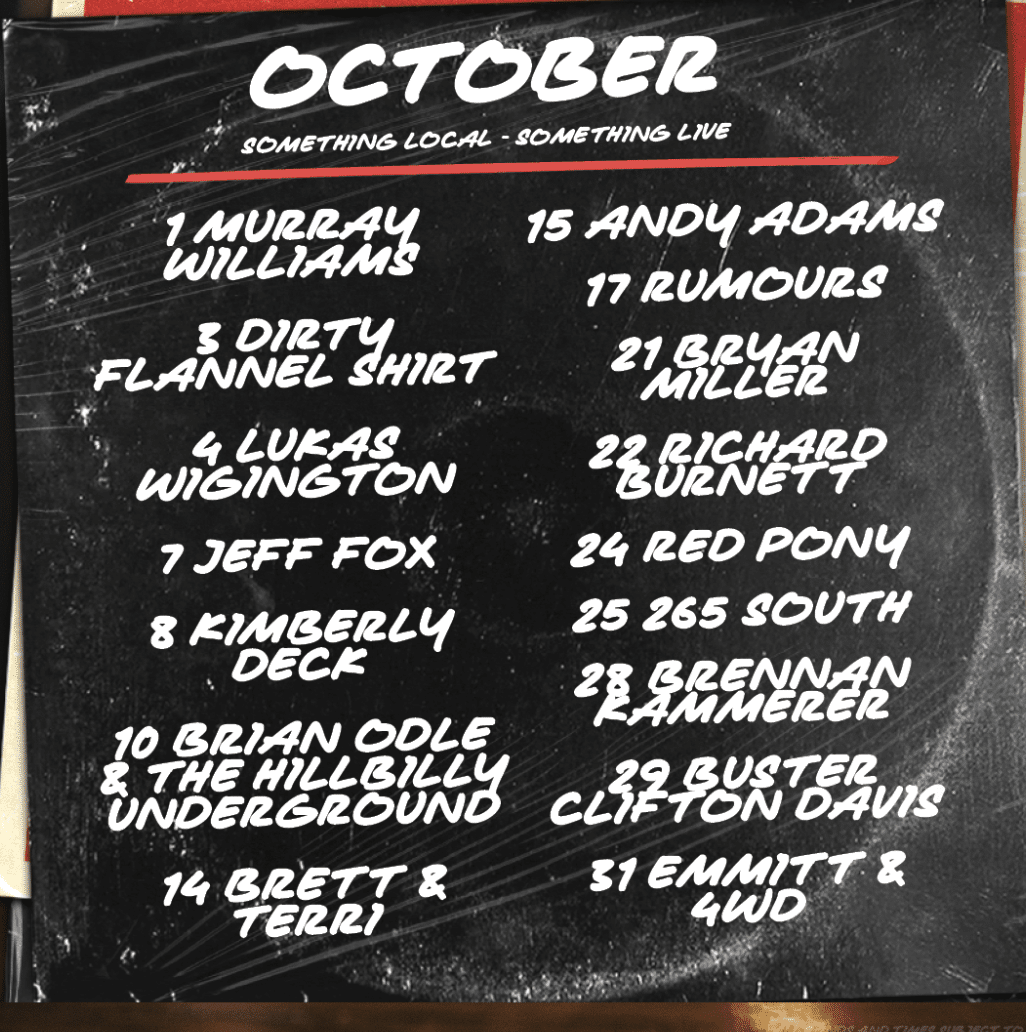 OCTOBER
SOMETHING LOCAL - SOMETHING LIVE
1 MURRAY
WILLIAMS
3 DIRTY
FLANNEL SHIRT
4 LUKAS
WIGINGTON
7 JEFF FOX
8 KIMBERLY
DECK
10 BRIAN ODLE
& THE HILLBILLY
UNDERGROUND
14 BRETT &
TERRI
15 ANDY ADAMS
17 RUMOURS
21 BRYAN
MILLER
22 RICHARD
BURNETT
24 RED PONY
25 265 SOUTH
28 BRENNAN
KAMMERER
29 BUSTER
CLIFTON DAVIS
31 EMMITT &
4WD